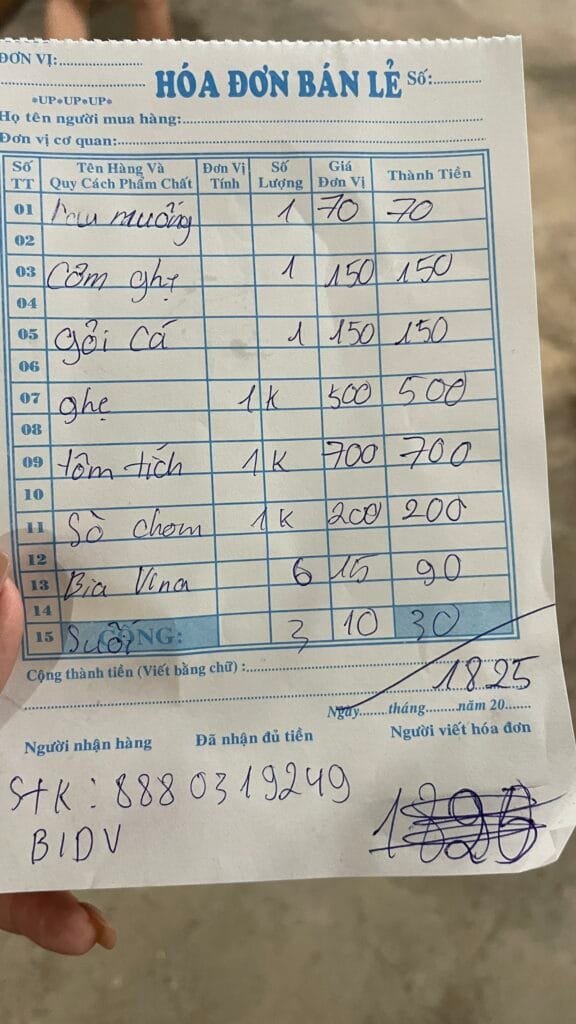 ĐƠN VỊ:
HÓA ĐƠN BÁN LẺ Số:
*UP*UP*UP*
Họ tên người mua hàng:
Đơn vị cơ quan:
Số TT Tên Hàng Và Quy Cách Phẩm Chất Đơn Vị Tính Số Lượng Giá Đơn Vị Thành Tiền
01 rau muống 1 70 70
02
03 Cơm ghẹ 1 150 150
04
05 gỏi cá 1 150 150
06
07 ghẹ 1K 500 500
08
09 tôm tích 1K 700 700
10
11 Sò chom 1K 200 200
12
13 Bia Vina 6 15 90
14
15 Suối CỘNG: 3 10 30
Cộng thành tiền (Viết bằng chữ) : 1825
Ngày........tháng.........năm 20.......
Người nhận hàng Đã nhận đủ tiền Người viết hóa đơn
STK: 8880319249
BIDV